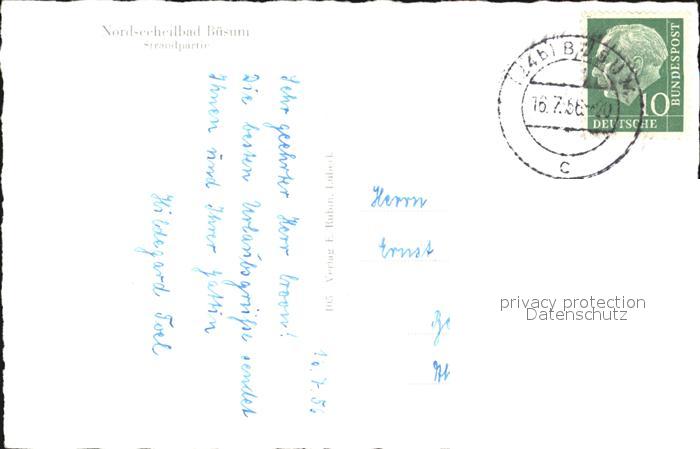 Nordseeheilbad Büsum
Strandpartie
16.7.56
Sehr geehrter Herr
Die besten Urlaubsgrüße sendet
Ihnen und Ihrer Gattin
Hildegard Toel
105 Verlag E. Rohm, Lübeck
Herrn
Ernst
(24b) BÜSUM
16.7.56.-20
C
10
DEUTSCHE
BUNDESPOST
privacy protection
Datenschutz